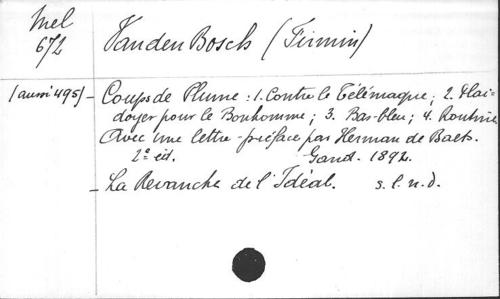 Mel
672
Vanden Bosch (Firmin)
(aussi 495) - Coups de Plume : 1. Contre le Télémaque ; 2. Plai-
doyer pour le Bonhomme ; 3. Bas-bleu ; 4. Routine
Avec une lettre-préface par Herman de Baets.
2e éd. Gand. 1892.
- La Revanche de l'Idéal. s. l. n. d.